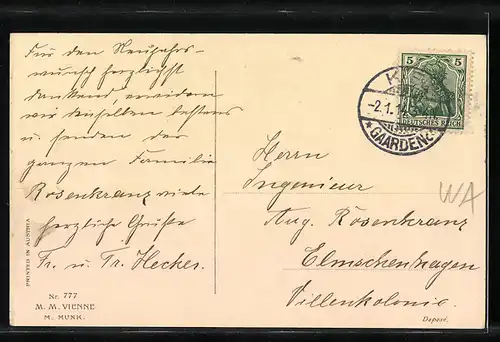 Für den Neujahrs-
wunsch herzlichst
dankend, erwidern
wir denselben bestens
u. senden der
ganzen Familie
Rosenkranz viele
herzliche Grüße
Fr. u. Fr. Hecker.
PRINTED IN AUSTRIA
Nr. 777
M. M. VIENNE
M. MUNK.
5 5
DEUTSCHES REICH
-2.1.1
* GAARDEN
Herrn
Ingenieur
Aug. Rosenkranz
Elmschenhagen
Villenkolonie.
WA
Déposé.